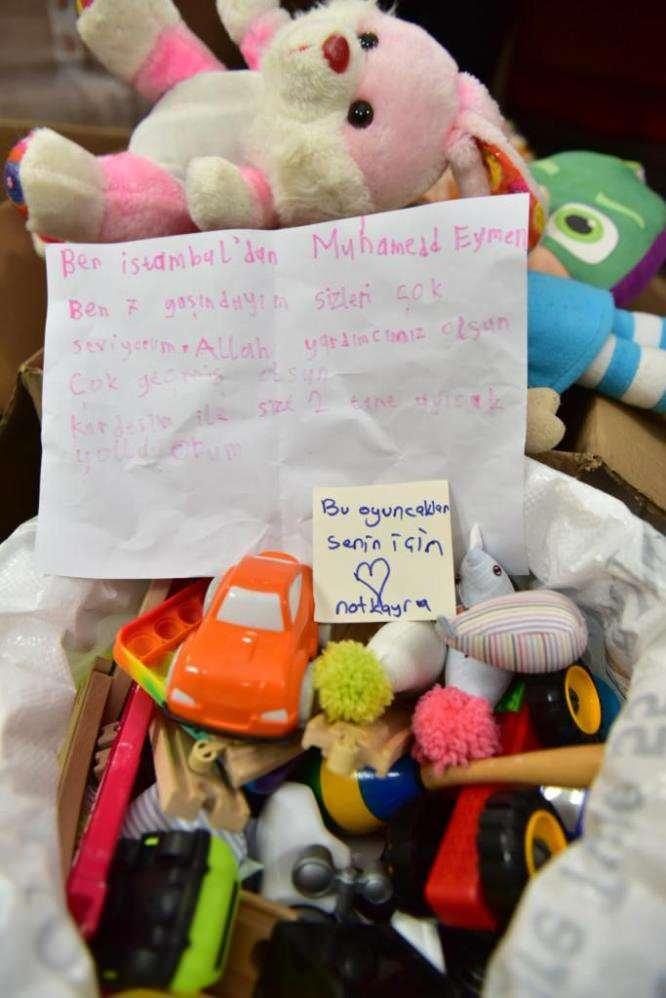 Ben istambul'dan Muhamedd Eymen
Ben 7 yaşındayım sizleri çok
seviyorum. Allah yardımcınız olsun
Çok geçmiş olsun
kardeşim ile size 2 tane oyucak
yolluyorum
Bu oyuncaklar
senin için
♡
not kayra